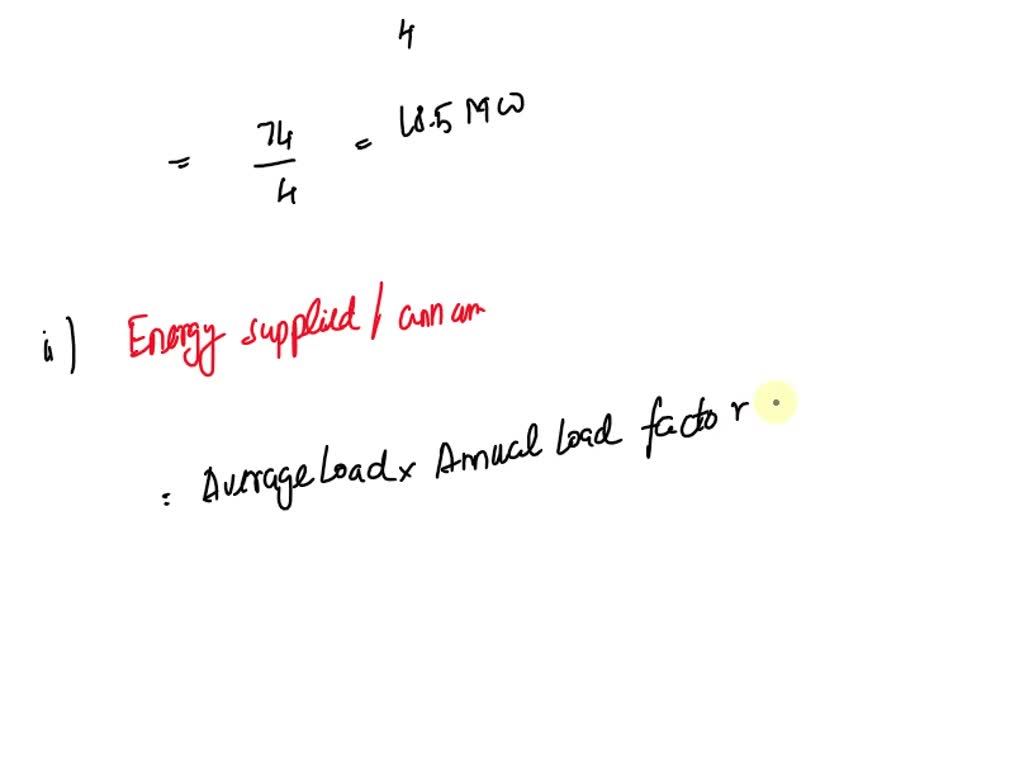 4
= 74/4 = 18.5 MW
ii) Energy supplied / annam
= Average Load x Annual Load factor